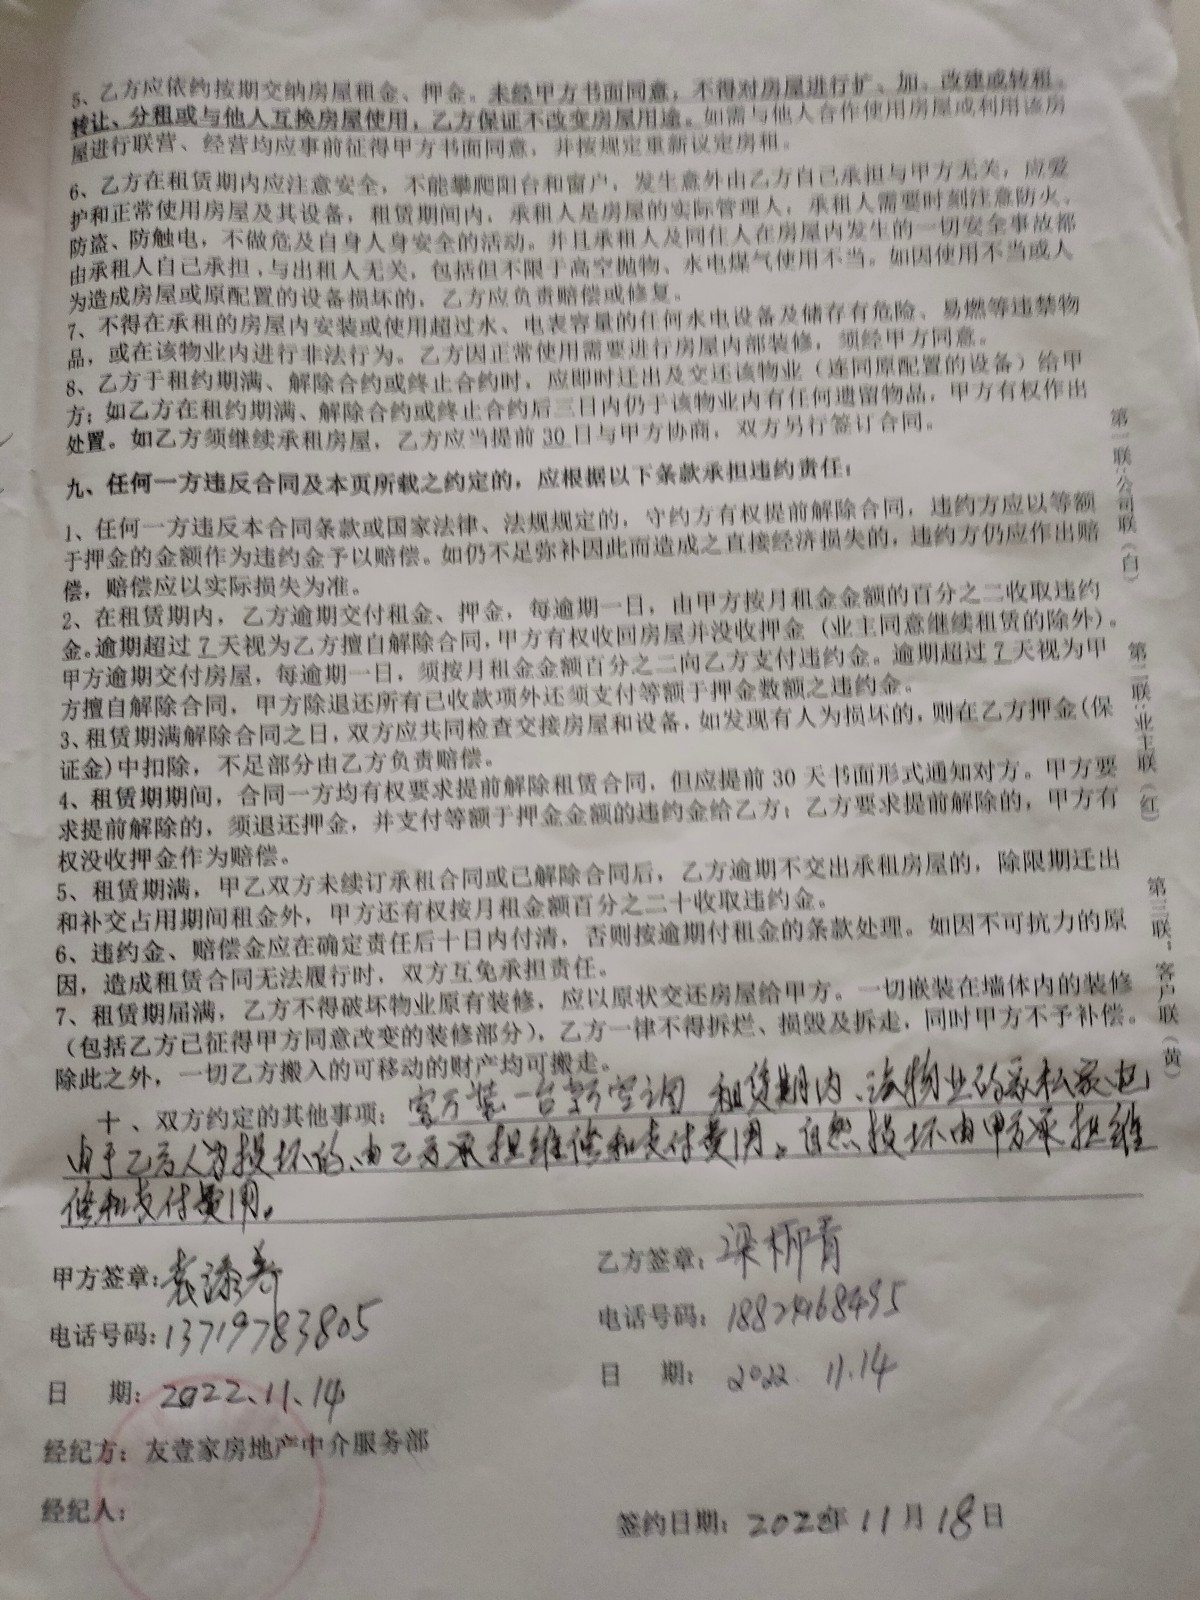 5、乙方应依约按期交纳房屋租金、押金。未经甲方书面同意，不得对房屋进行扩、加、改建或转租、
转让、分租或与他人互换房屋使用，乙方保证不改变房屋用途。如需与他人合作使用房屋或利用该房
屋进行联营、经营均应事前征得甲方书面同意，并按规定重新议定房租。
6、乙方在租赁期内应注意安全，不能攀爬阳台和窗户，发生意外由乙方自己承担与甲方无关，应爱
护和正常使用房屋及其设备，租赁期间内，承租人是房屋的实际管理人，承租人需要时刻注意防火、
防盗、防触电，不做危及自身人身安全的活动。并且承租人及同住人在房屋内发生的一切安全事故都
由承租人自己承担，与出租人无关，包括但不限于高空抛物、水电煤气使用不当。如因使用不当或人
为造成房屋或原配置的设备损坏的，乙方应负责赔偿或修复。
7、不得在承租的房屋内安装或使用超过水、电表容量的任何水电设备及储存有危险、易燃等违禁物
品，或在该物业内进行非法行为。乙方因正常使用需要进行房屋内部装修，须经甲方同意。
8、乙方于租约期满、解除合约或终止合约时，应即时迁出及交还该物业（连同原配置的设备）给甲
方；如乙方在租约期满、解除合约或终止合约后三日内仍于该物业内有任何遗留物品，甲方有权作出
处置。如乙方须继续承租房屋，乙方应当提前30日与甲方协商，双方另行签订合同。
九、任何一方违反合同及本页所载之约定的，应根据以下条款承担违约责任：
1、任何一方违反本合同条款或国家法律、法规规定的，守约方有权提前解除合同，违约方应以等额
于押金的金额作为违约金予以赔偿。如仍不足弥补因此而造成之直接经济损失的，违约方仍应作出赔
偿，赔偿应以实际损失为准。
2、在租赁期内，乙方逾期交付租金、押金，每逾期一日，由甲方按月租金金额的百分之二收取违约
金。逾期超过7天视为乙方擅自解除合同，甲方有权收回房屋并没收押金（业主同意继续租赁的除外）。
甲方逾期交付房屋，每逾期一日，须按月租金金额百分之二向乙方支付违约金。逾期超过7天视为甲
方擅自解除合同，甲方除退还所有已收款项外还须支付等额于押金数额之违约金。
3、租赁期满解除合同之日，双方应共同检查交接房屋和设备，如发现有人为损坏的，则在乙方押金（保
证金）中扣除，不足部分由乙方负责赔偿。
4、租赁期期间，合同一方均有权要求提前解除租赁合同，但应提前30天书面形式通知对方。甲方要
求提前解除的，须退还押金，并支付等额于押金金额的违约金给乙方；乙方要求提前解除的，甲方有
权没收押金作为赔偿。
5、租赁期满，甲乙双方未续订承租合同或已解除合同后，乙方逾期不交出承租房屋的，除限期迁出
和补交占用期间租金外，甲方还有权按月租金额百分之二十收取违约金。
6、违约金、赔偿金应在确定责任后十日内付清，否则按逾期付租金的条款处理。如因不可抗力的原
因，造成租赁合同无法履行时，双方互免承担责任。
7、租赁期届满，乙方不得破坏物业原有装修，应以原状交还房屋给甲方。一切嵌装在墙体内的装修
（包括乙方已征得甲方同意改变的装修部分），乙方一律不得拆烂、损毁及拆走，同时甲方不予补偿。
除此之外，一切乙方搬入的可移动的财产均可搬走。
十、双方约定的其他事项：客厅装一台新空调 租赁期内、该物业的家私家电
由于乙方人为损坏的、由乙方承担维修和支付费用。自然损坏由甲方承担维
修和支付费用。
甲方签章：袁添寿
乙方签章：梁柳青
电话号码：13719783805
电话号码：18824168495
日 期：2022.11.14
日 期：2022.11.14
经纪方：友壹家房地产中介服务部
经纪人：
签约日期：2022年11月18日
第一联：公司联（白）
第二联：业主联（红）
第三联：客户联（黄）